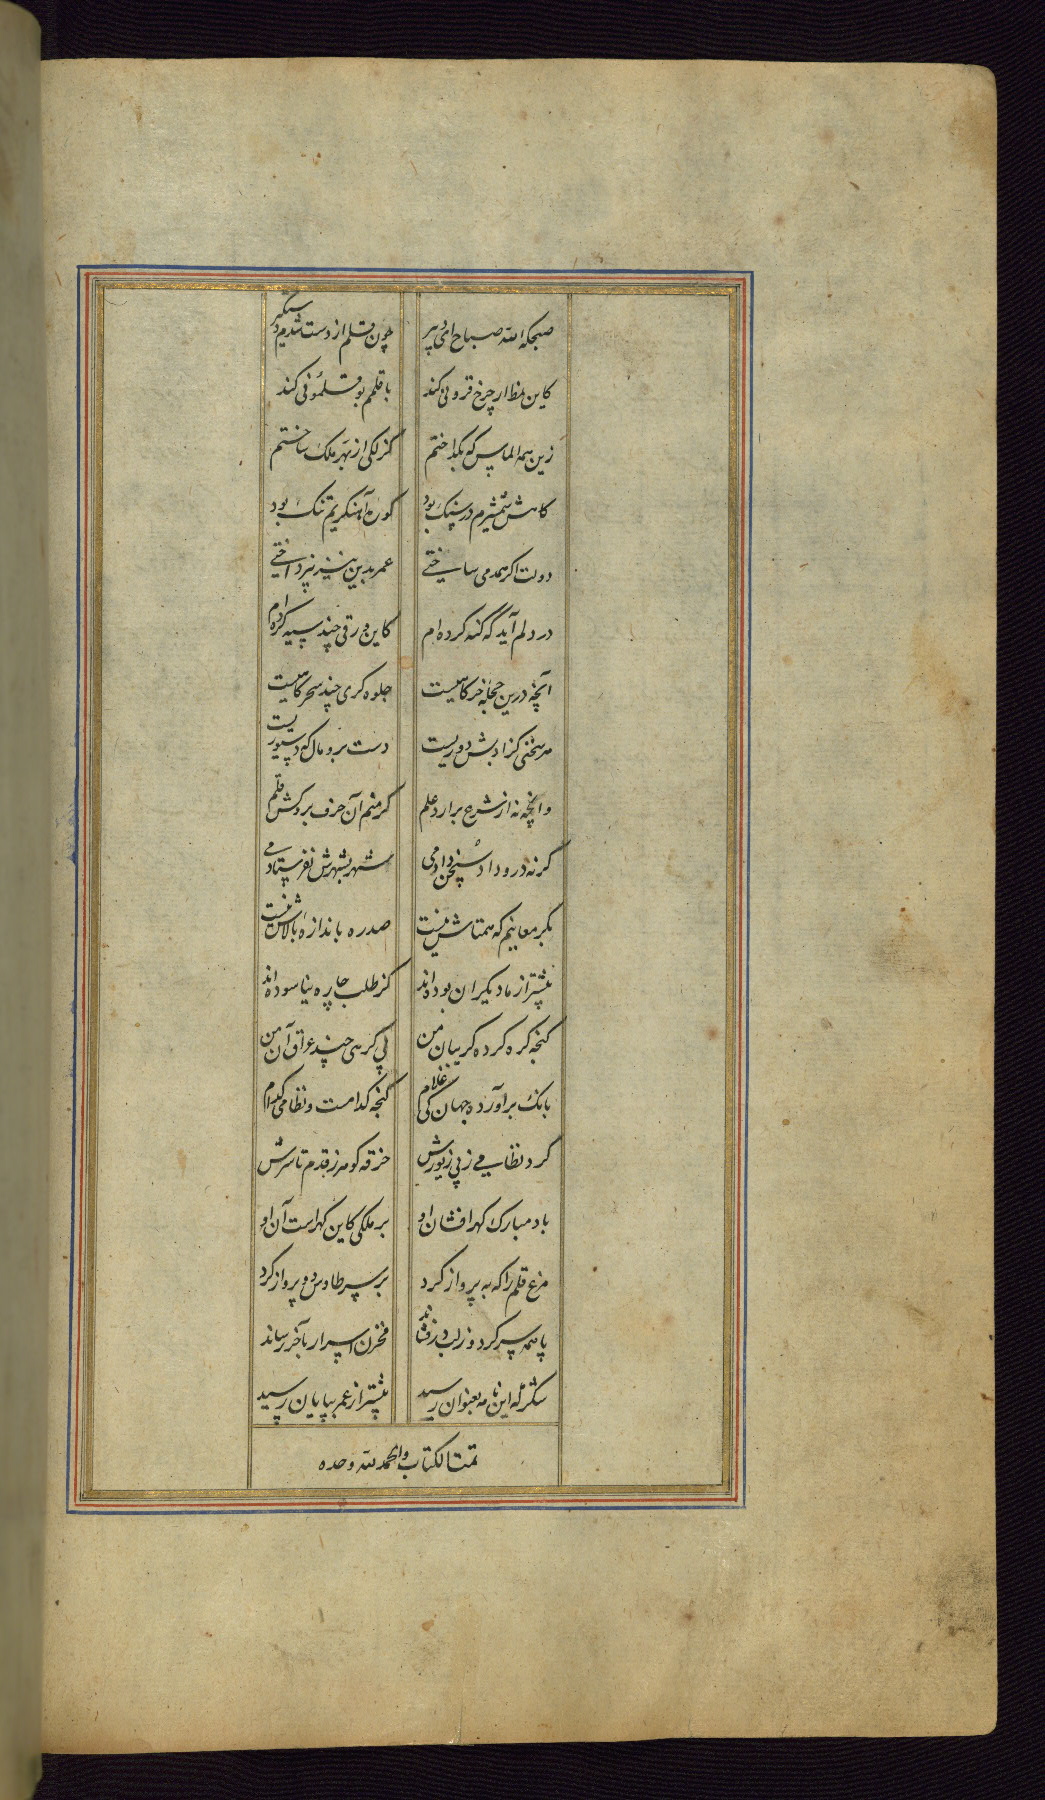 صبحکه الله صباح ای دبیر چون قلم از دست شدم دستگیر
کاین نمط از چرخ فزونی کند با قلمم بوقلمونی کند
زین همه الماس که بکداختم کزلکی از بهر ملک ساختم
کاهش شمشیرم در سنک بود کوره آهنکریم تنک بود
دولت اگر همدمی ساختے عمر بدین نیز نپرداختے
در دلم آید که گنه کرده ام کاین ورقی چند سیه کرده ام
آنچه درین حجله خرکاهیست جلوه کری چند سحرکاهیست
هر سخنی کز ادبش دوریست دست برو مال که دستوریست
وانچه نه از شرع برارد علم کر منم آن حرف بروکش قلم
کرنه درو داد سخن دادمی شهر بشهرش نفرستادمی
بکر معانیم که همتاش نیست صدره باندازه بالاش نیست
پیشتر از ما دیکران بوده اند کز طلب چاره نیاسوده اند
کنجه کره کرده کریبان من بی کرهی چند عراق آن من
بانک برآورده جهان کی غلام کنجه کدامست و نظامی کدام
کرد نظامے ز پی زیورش غرقه کوهر ز قدم تا سرش
باد مبارک کهر افشان او بر ملکی کاین کهر است آن او
مرغ قلم را که به پرواز کرد بر سر طاوس دو پر باز کرد
پا همه سر کرد و ز لب در فشاند مخزن اسرار بآخر رساند
شکر که این نامه بعنوان رسید پیشتر از عمر بپایان رسید
تمت الکتاب والحمد لله وحده